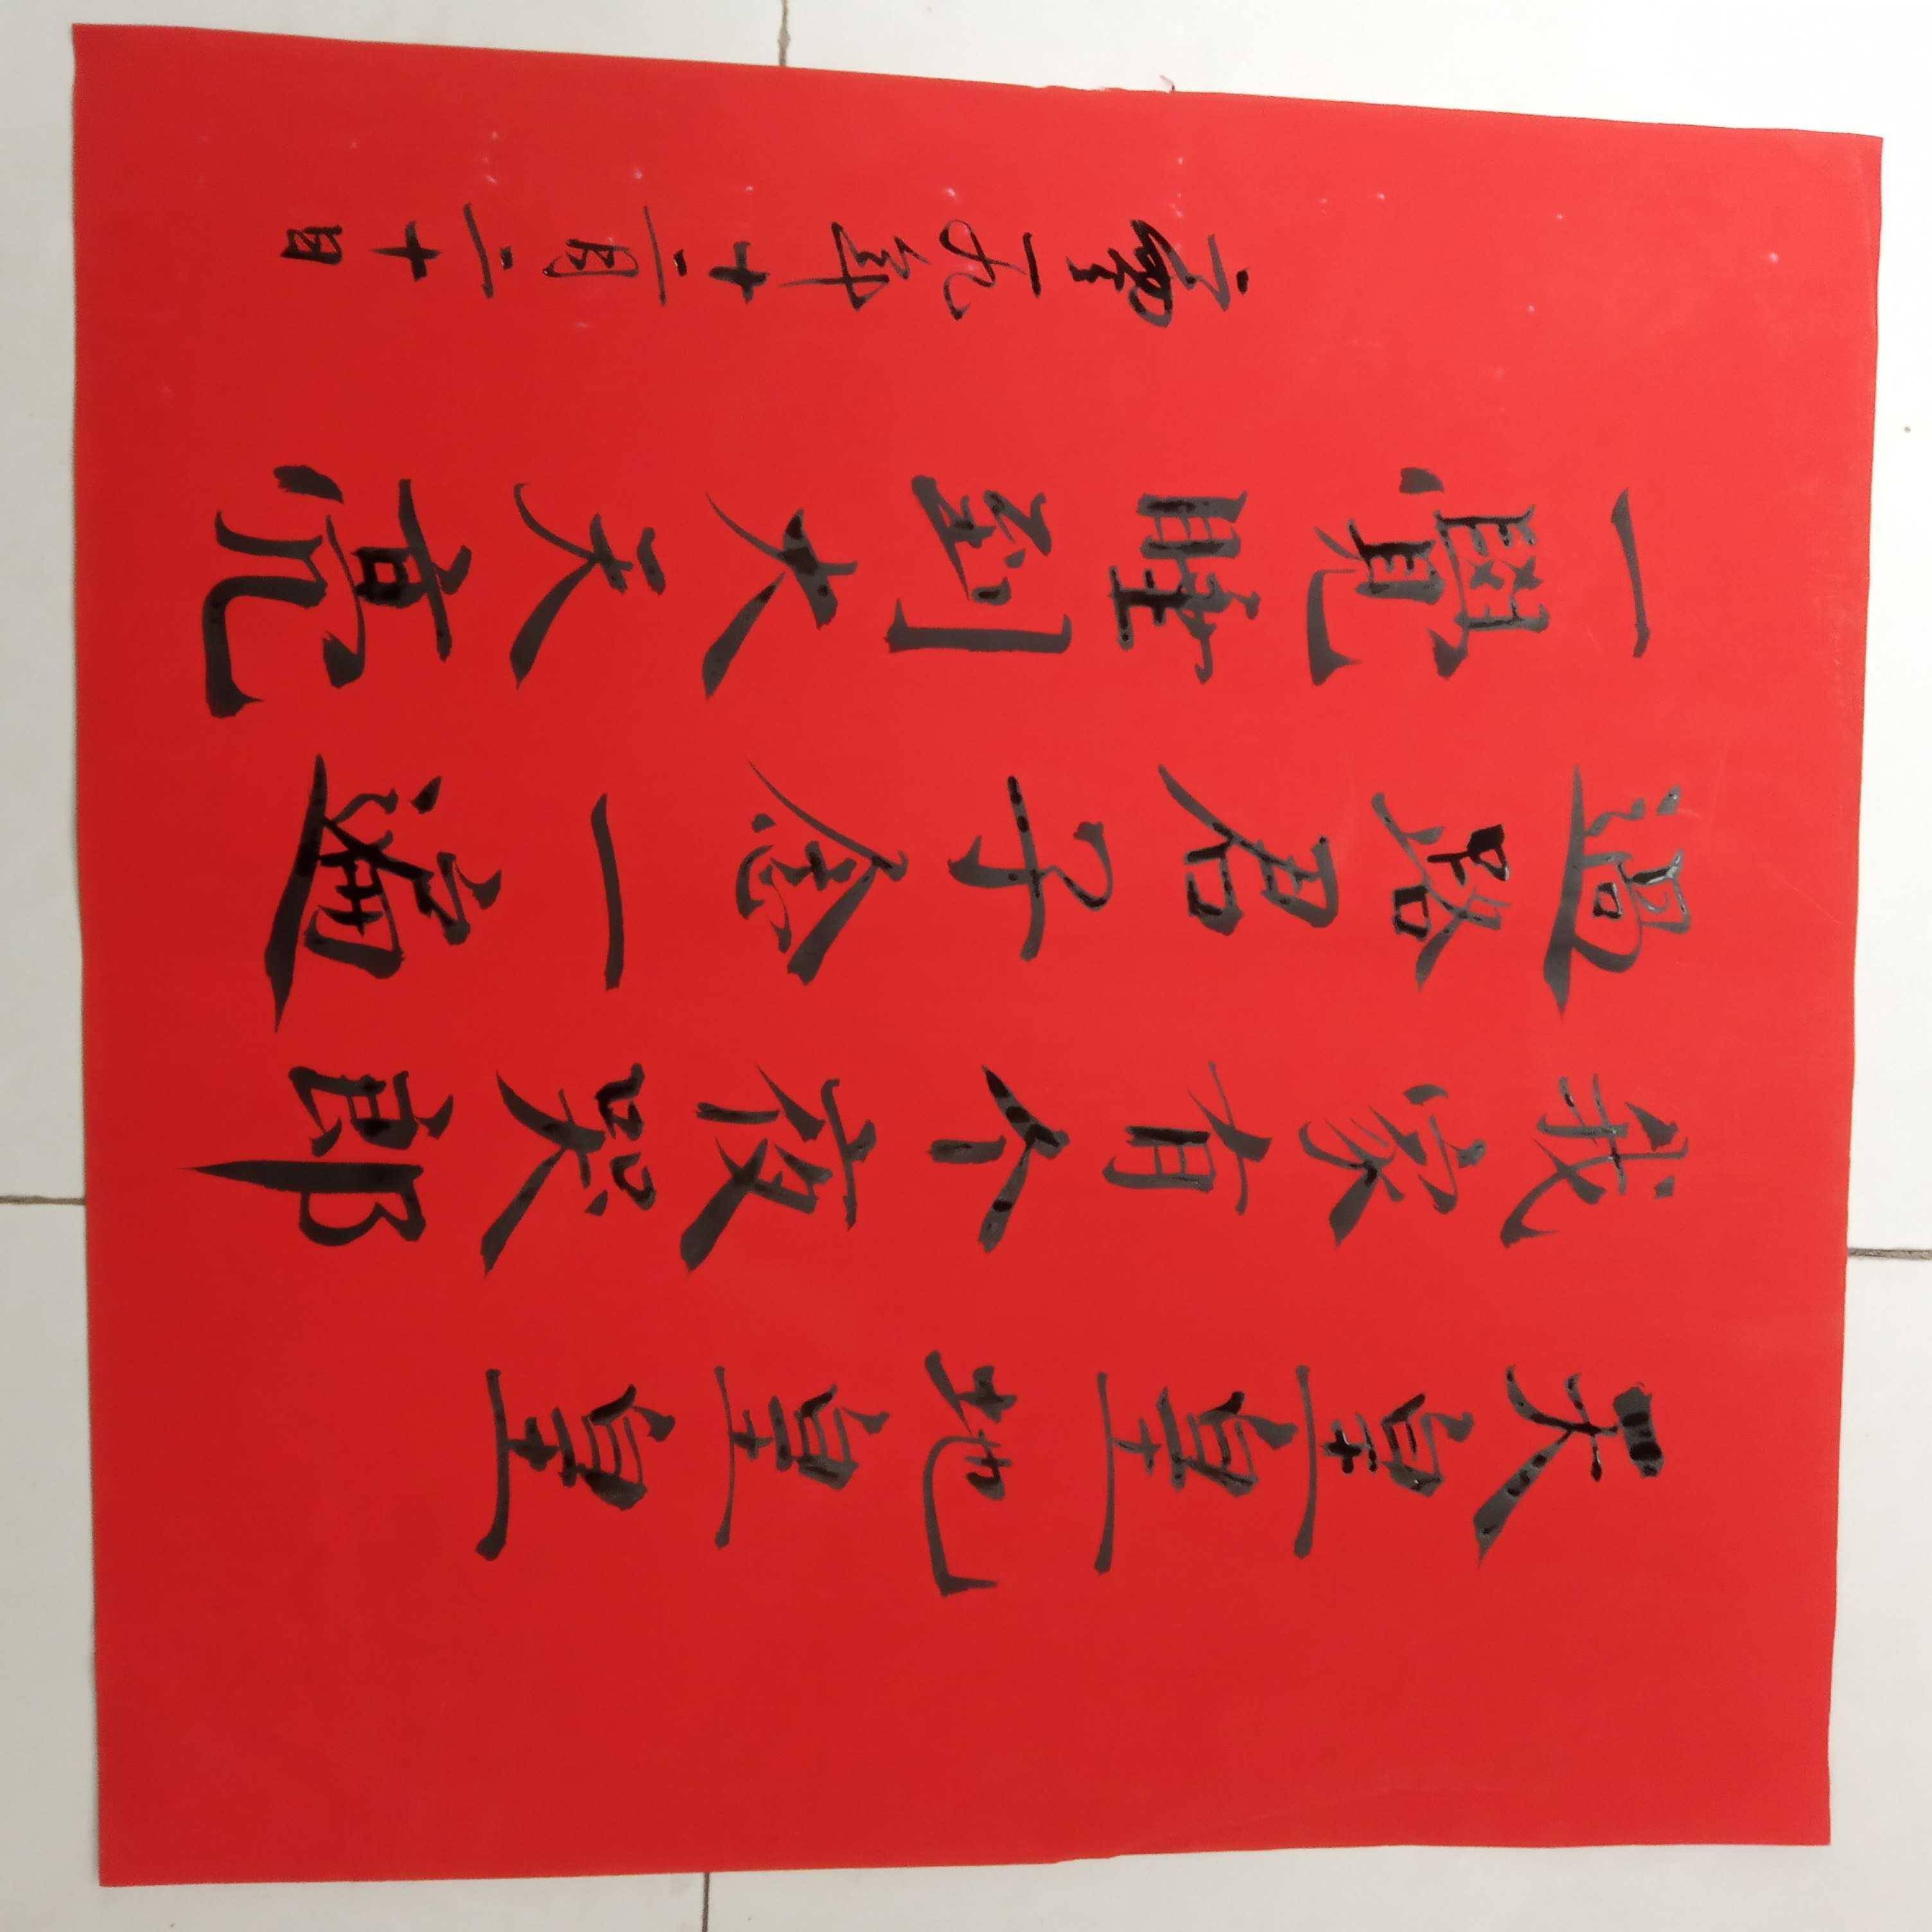 昊皇皇地皇皇
我家有个夜哭郎
過路君子念一遍
一覺睡到大天亮
二零一九年十二月二十日